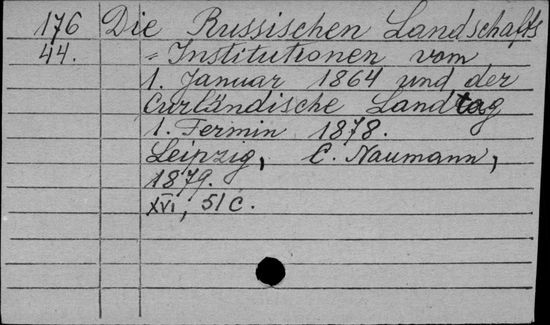 176 Die Russischen Landschafts
44. = Institutionen vom
1. Januar 1864 und der
Curländische Landtag
1. Termin 1878.
Leipzig, C. Naumann,
1879.
XVI, 51 C.